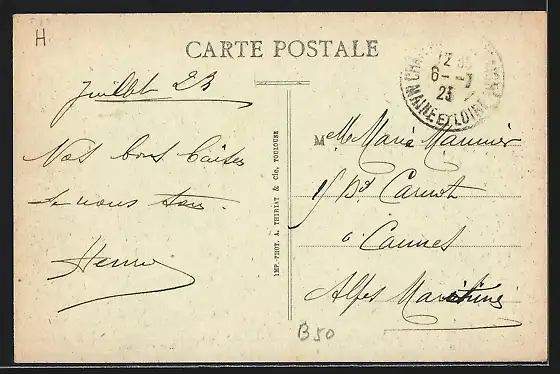 H
CARTE POSTALE
Juillet 23
Nos bons baisers
de nous tous.
Henri
IMP.-PHOT. A. THIRIAT & Cie, TOULOUSE
12
6-7
23
MAINE ET LOIRE
Mlle Marie
15 Bd Carnot
à Cannes
Alpes Maritime
B50